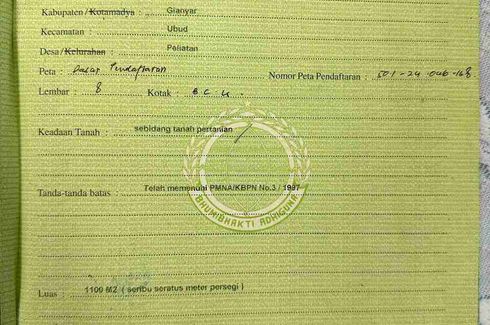 Kabupaten / Kotamadya : Gianyar
Kecamatan : Ubud
Desa / Kelurahan : Peliatan
Peta : Dasar Pendaftaran Nomor Peta Pendaftaran : 501-24 046-168
Lembar : 8 Kotak :
Keadaan Tanah : sebidang tanah pertanian
Tanda-tanda batas : Telah memenuhi PMNA/KBPN No.3 / 1997
BHUMI BHAKTI ADHIGUNA
Luas : 1100 M2 ( seribu seratus meter persegi )